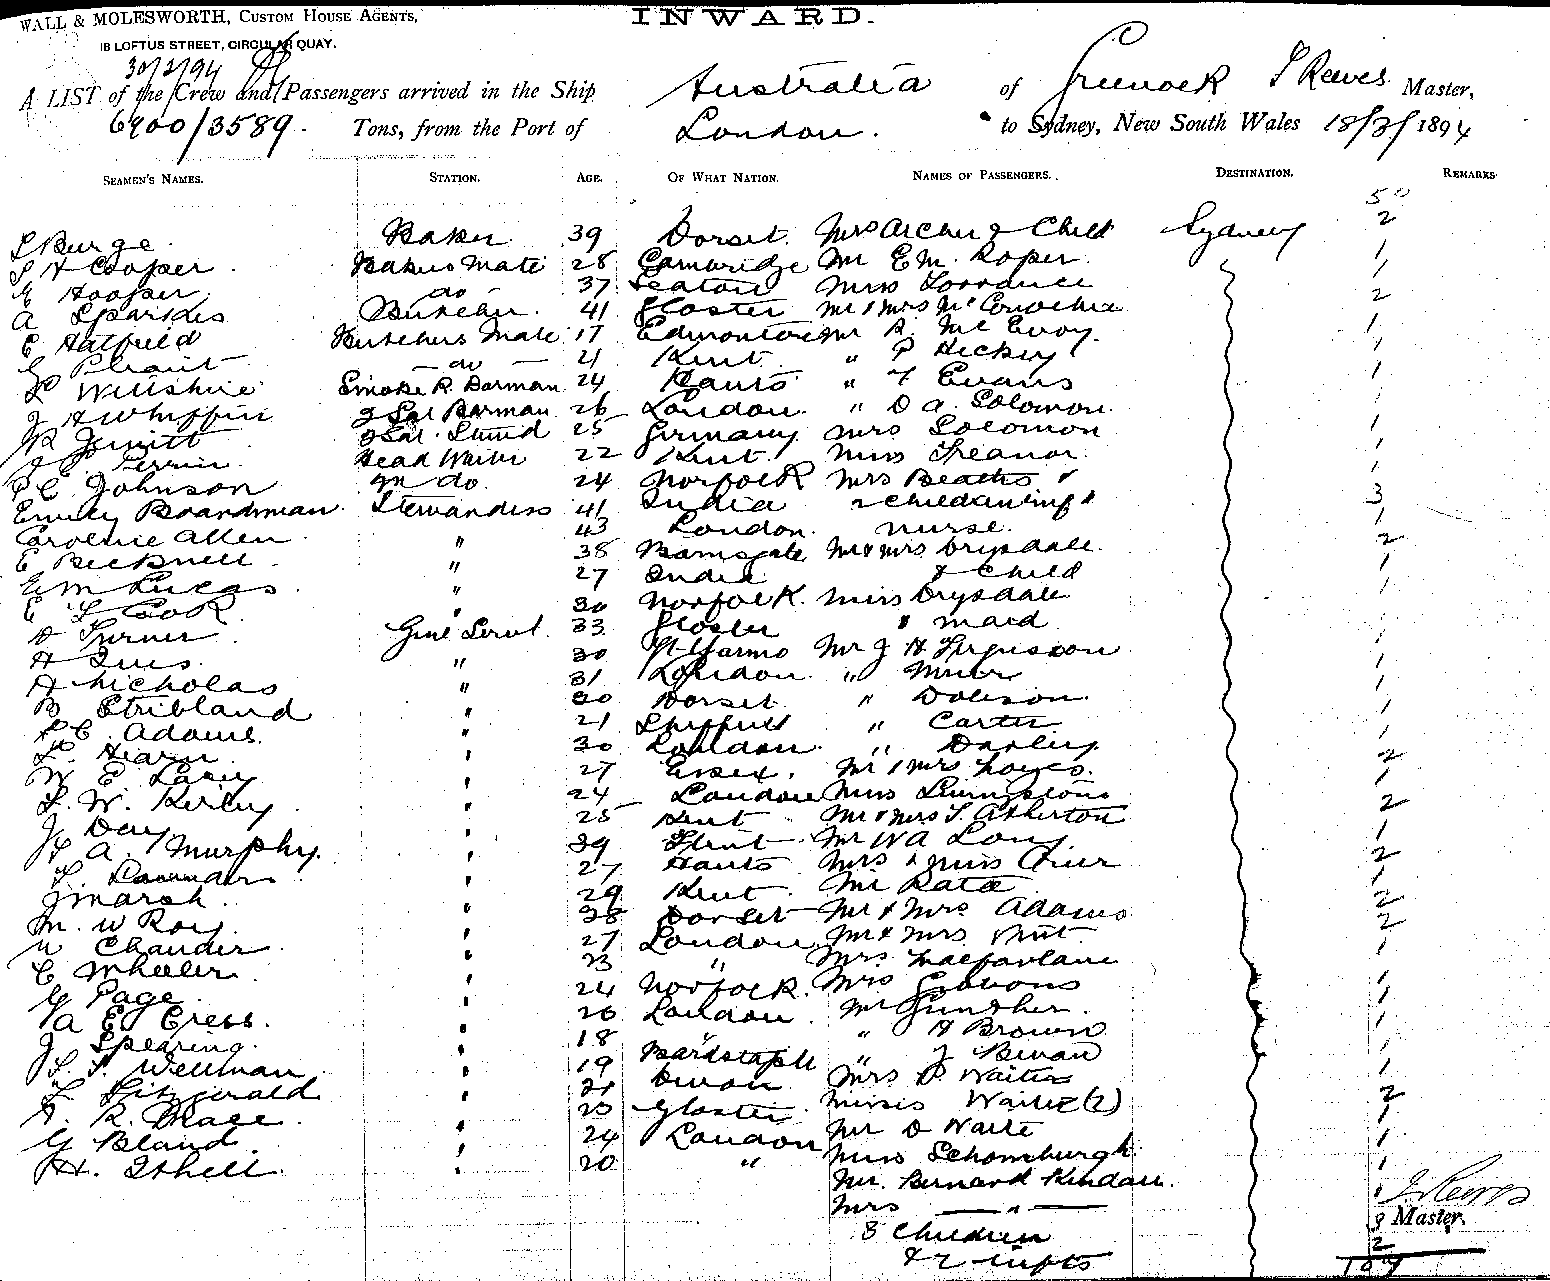 WALL & MOLESWORTH, CUSTOM HOUSE AGENTS,
INWARD.
18 LOFTUS STREET, CIRCULAR QUAY.
A LIST of the Crew and Passengers arrived in the Ship Australia of Greenock J Reeves Master,
6900/3589. Tons, from the Port of London. to Sydney, New South Wales 18/3/1894
SEAMEN'S NAMES. STATION. AGE. OF WHAT NATION. NAMES OF PASSENGERS. DESTINATION. REMARKS
50
Burge Baker 39 Dorset Mrs Archer & Child Sydney 2
H Cooper Bakers Mate 28 Cambridge Mr E M. Roper 1
E Hooper do 37 Seaton Miss Lorrance 1
A Sparkes Butcher 41 Gloster Mr & Mrs McConochie 2
E Hatfield Butchers Mate 17 Edmonton Mr R. McEvoy 1
do 21 Kent " P Hickey 1
Willshire Smoke R. Barman 24 Hants " F Evans 1
J H Whiffin 2 Sal Barman 26 London " D A. Solomon 1
Jewitt 2 Sal. Stewd 25 Germany Mrs Solomon 1
Perrin Head Waiter 22 Kent Miss Treanor 1
C Johnson do 24 Norfolk Mrs Beaths
Emily Boardman Stewardess 41 India 2 children & inft 3
Caroline Allen " 43 London nurse 1
E Bicknell " 38 Ramsgate Mr & Mrs Drysdale 2
E M Lucas " 27 India & Child 1
E Cook " 30 Norfolk Miss Drysdale 1
Turner Genl Servt 33 Gloster " maid 1
H Ives " 30 Yt Yarmo Mr J H Fergusson 1
H Nicholas " 31 London " Muir 1
B Stribland " 20 Dorset " Dobson 1
C Adams " 21 Sheffield " Carter 1
Hearn " 30 London " Darley 1
W E Lacey " 27 Essex Mr & Mrs Noyes 2
W. Kirby " 24 London Miss Livingstone 1
J Day " 25 Kent Mr & Mrs T. Atherton 2
A Murphy " 29 Flint Mr W A Long 1
Saunders " 27 Hants Mrs & Miss Crier 2
J Marsh " 29 Kent Mr Rata 1
M. W Roy " 28 Dorset Mr & Mrs Adams 2
W Chander " 27 London Mr & Mrs 2
C Wheeler " 23 " Mrs Macfarlane 1
G Page " 24 Norfolk Mrs Gibbons 1
A E Cress " 26 London Mr Gunther 1
J Spearing " 18 " " H Brown 1
Wellman " 19 Barnstaple " J Bevan 1
Fitzgerald " 21 Devon Mrs D Waite 1
R. Mace " 23 Gloster Misses Waite (2) 2
G Bland " 24 London Mr D Waite 1
H. Ithell " 20 " Miss Schomburgh 1
Mr. Bernard Kendall 1
Mrs — " — 1 J Reeves
3 Children 3 Master.
& 2 infts 2
109